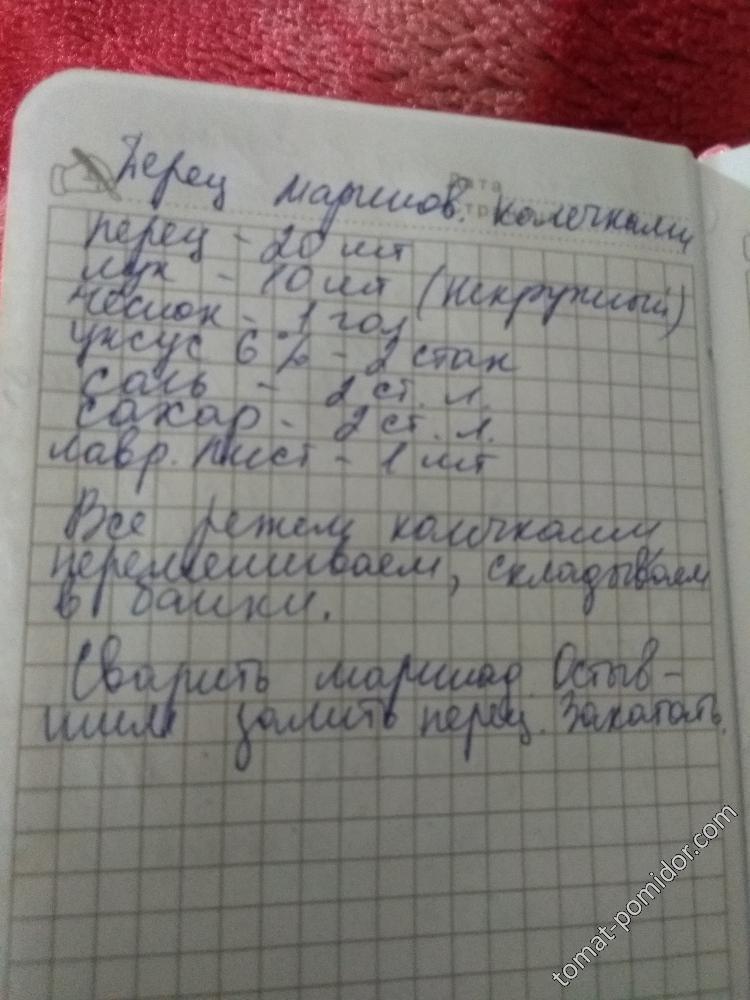 Перец маринов. колечками
перец - 20 шт
лук - 10 шт (некрупный)
чеснок - 1 гол
уксус 6% - 2 стак
соль - 2 ст. л.
сахар - 2 ст. л.
лавр. лист - 1 шт
Все режем колечками
перемешиваем, складываем
в банки.
Сварить маринад. Остыв-
шим залить перец. Закатать.
tomat-pomidor.com